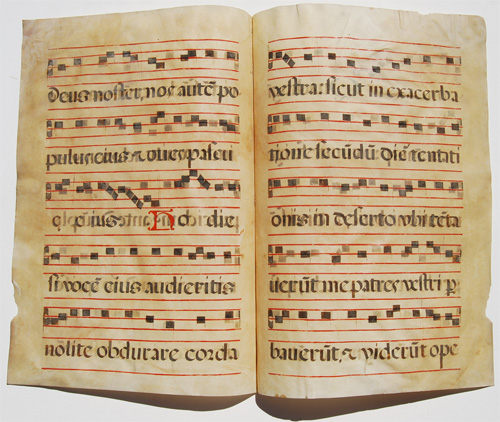 deus noster, nos autē po
pulus eius & oues pascu
eius. Hodie
si vocē eius audieritis
nolite obdurare corda
vestra: sicut in exacerba
tione secūdū diē tentati
onis in deserto vbi tēta
uerūt me patres vestri p
bauerūt, & viderūt ope